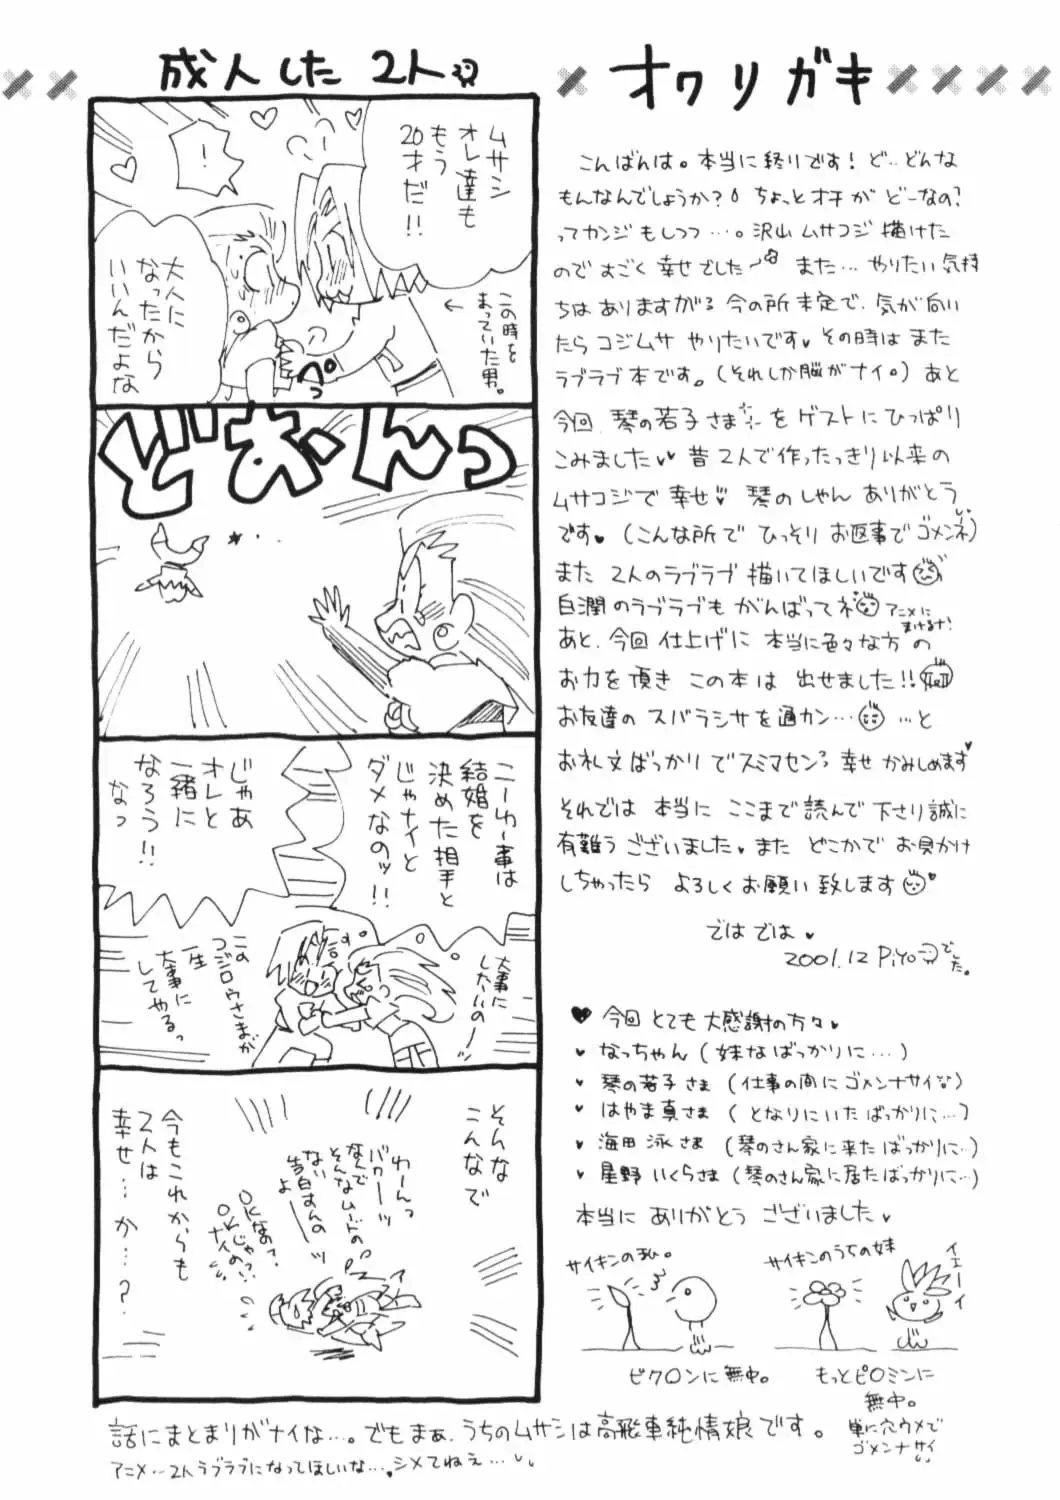 成人した2人
ムサシ
オレ達も
もう
20才だ!!
!
この時を
まっていた男。
大人に
なったから
いいんだよな
ペっ
どおーんっ
こーゆー事は
結婚を
決めた相手と
じゃナイと
ダメなのッ!!
じゃあ
オレと
一緒に
なろう!!
なっ
大事に
したいのー
この
コジロウさまが
一生
大事に
してやるっ
そんな
こんなで
わーんっ
バカーッ
なんで
そんなムードの
ない
告白すんの
よーッ
OKなの?
OKじゃ
ナイの!?
今もこれからも
2人は
幸せ…か…?
話にまとまりがナイな…。でもまぁ、うちのムサシは高飛車純情娘です。
アニメ…2人ラブラブになってほしいな…。シメてねえ…
オワリガキ
こんばんは。本当に終りです!ど…どんな
もんなんでしょうか?ちょっとオチがどーなの?
ってカンジもしつつ…。沢山ムサコジ描けた
のですごく幸せでした〜 また…やりたい気持
ちはありますがる今の所未定で、気が向い
たらコジムサやりたいです♥その時はまた
ラブラブ本です。(それしか脳がナイ。)あと
今回、琴の若子さまをゲストにひっぱり
こみました♥♥昔2人で作ったっきり以来の
ムサコジで幸せ♥琴のしゃんありがとう
です♥(こんな所でひっそりお返事でゴメンネ)
また2人のラブラブ描いてほしいです
白潤のラブラブもがんばってネ アニメに
まけるな!
あと、今回仕上げに本当に色々な方の
お力を頂きこの本は出せました!!
お友達のスバラシサを通カン… …と
お礼文ばっかりでスミマセンろ幸せかみしめます♥
それでは本当にここまで読んで下さり誠に
有難うございました♥またどこかでお見かけ
しちゃったらよろしくお願い致します♥
ではでは♥
2001.12 Piyoでした。
♥今回とても大感謝の方々♥
♥なっちゃん(妹なばっかりに…)
♥琴の若子さま(仕事の間にゴメンナサイ)
♥はやま真さま(となりにいたばっかりに…)
♥海田泳さま(琴のさん家に来たばっかりに…)
♥星野いくらさま(琴のさん家に居たばっかりに…)
本当にありがとうございました♥
サイキンの私。
ピクロンに無中。
サイキンのうちの妹
イエーイ
もっとピロミンに
無中。
単に穴ウメで
ゴメンナサイ